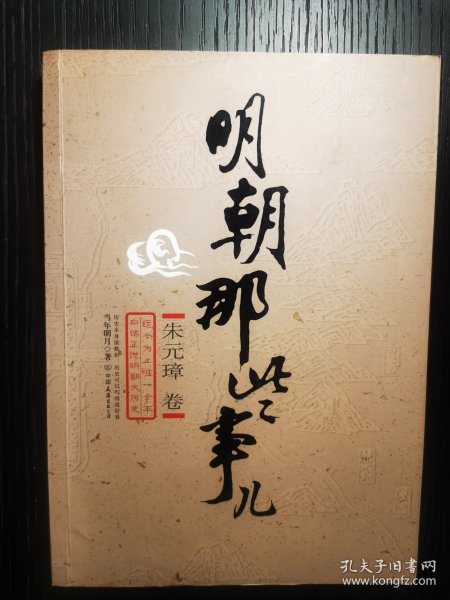 明朝那些事儿
朱元璋 卷
迄今为止唯一全本
白话正说明朝大历史
历史本身很精彩,历史可以写得很好看
当年明月◎著
中国友谊出版公司
孔夫子旧书网
www.kongfz.com